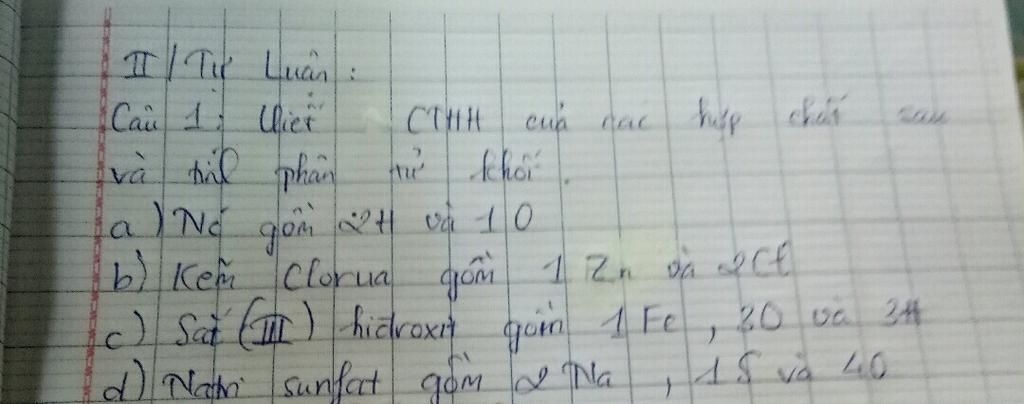 II / Tự Luân :
Câu 1 : Viết CTHH của các hợp chất sau
và tính phân tử khối .
a ) Nước gồm 2H và 1 O
b ) Kẽm Clorua gồm 1 Zn và 2Cl
c ) Sắt (III) hidroxit gồm 1 Fe , 3O và 3H
d ) Natri sunfat gồm 2 Na , 1 S và 4O